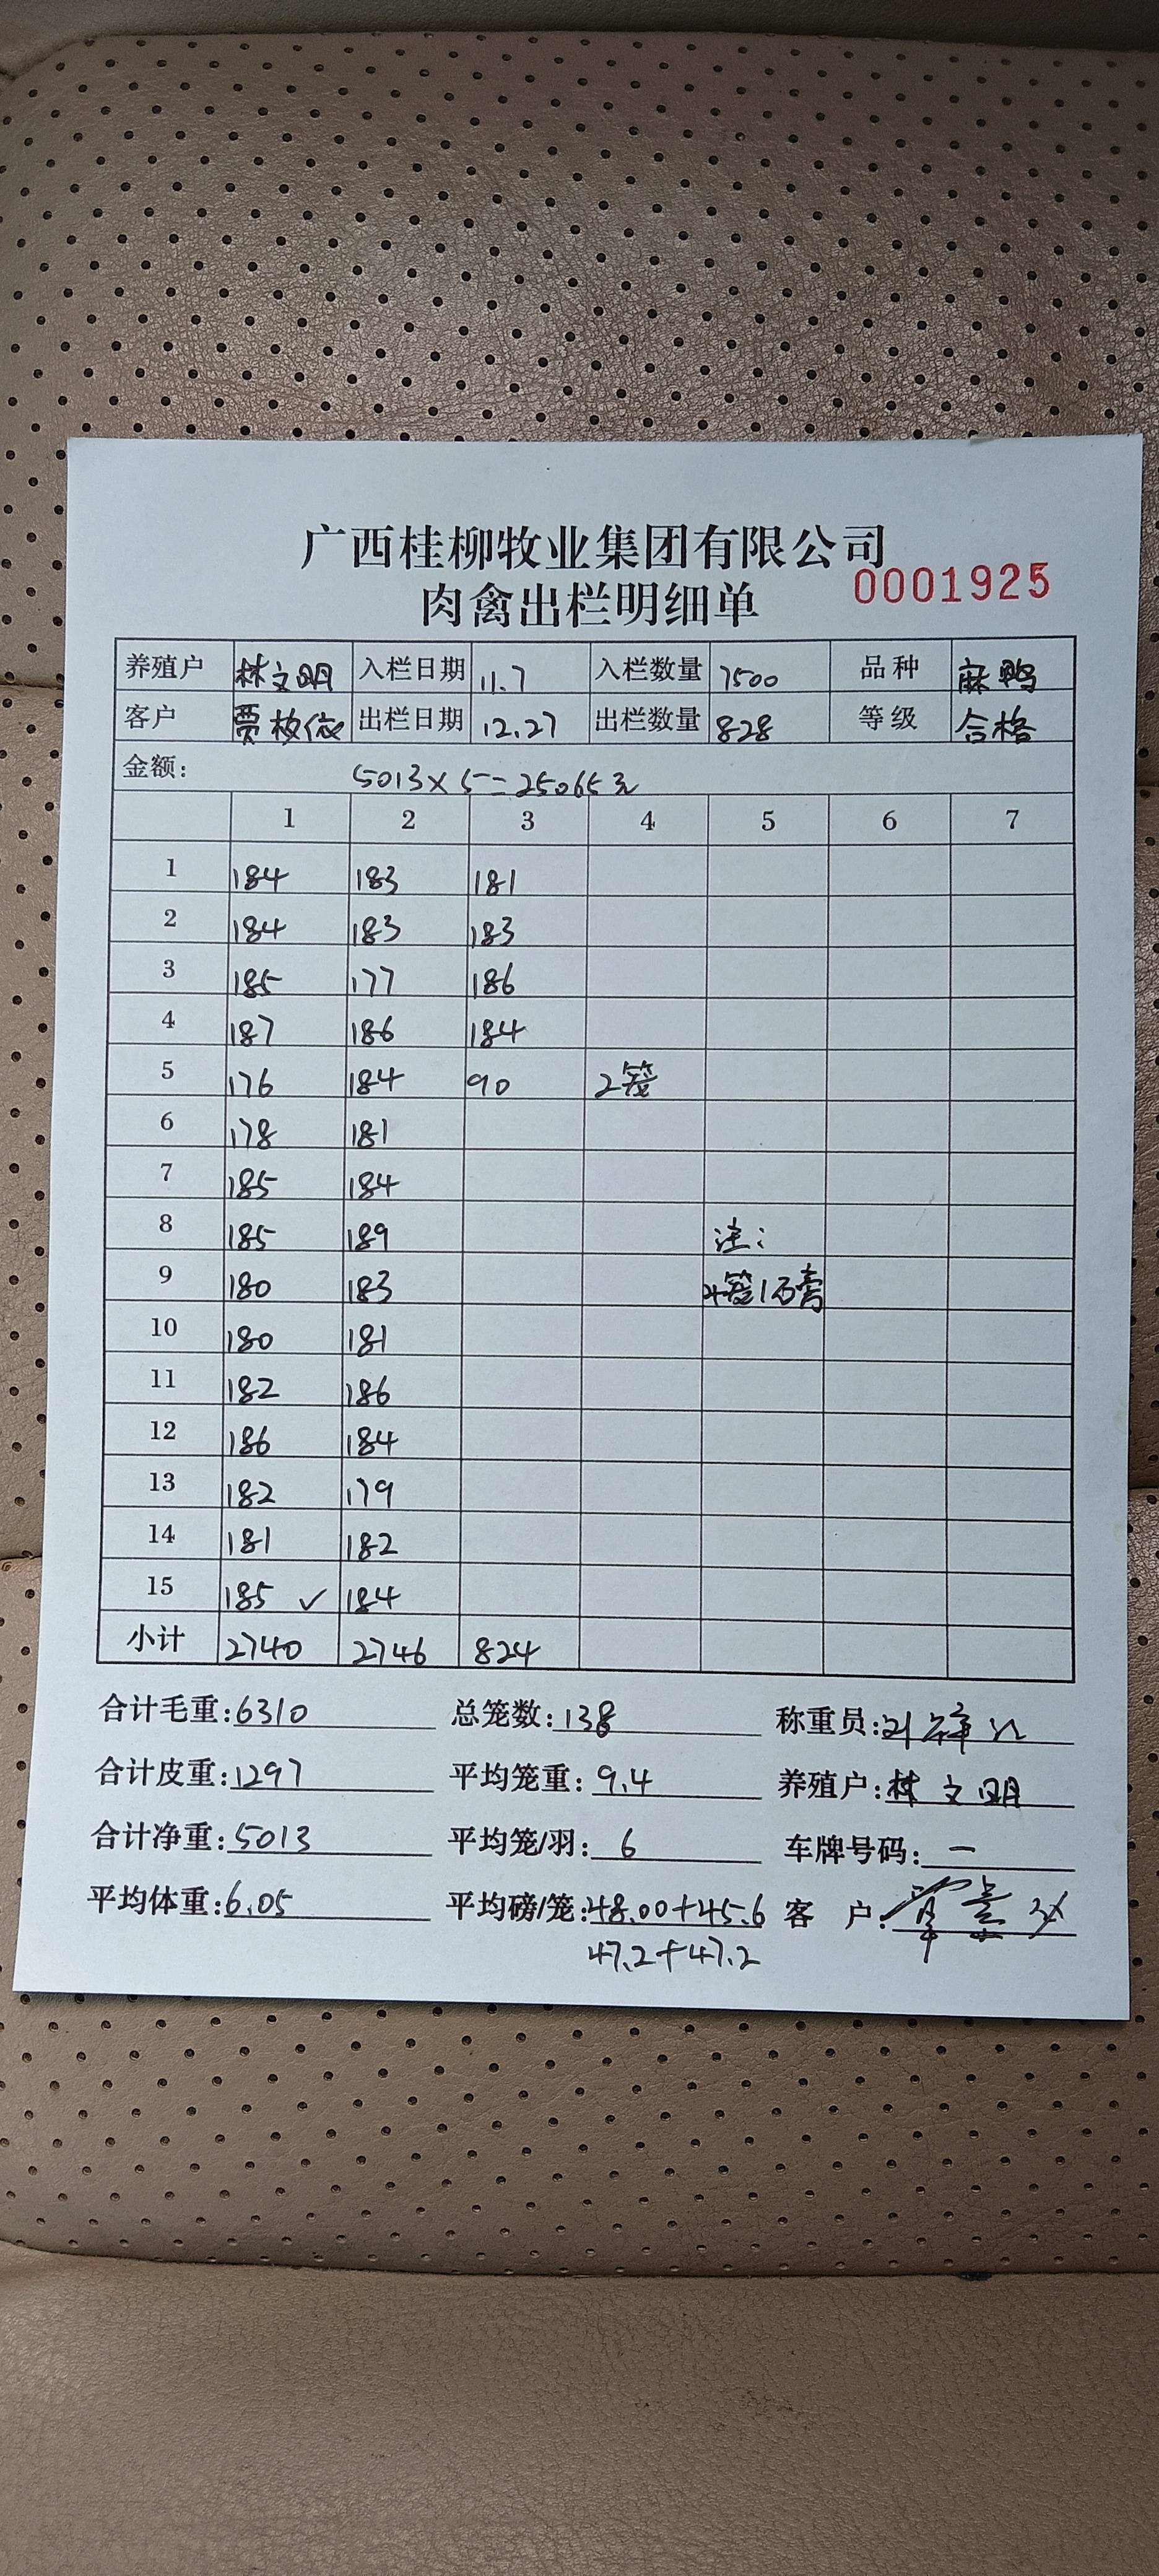 广西桂柳牧业集团有限公司
肉禽出栏明细单 0001925
养殖户 林文明 入栏日期 11.7 入栏数量 7500 品种 麻鸭
客户 贾枚依 出栏日期 12.27 出栏数量 828 等级 合格
金额: 5013×5=25065元
1 2 3 4 5 6 7
1 184 183 181
2 184 183 183
3 185 177 186
4 187 186 184
5 176 184 90 2笼
6 178 181
7 185 184
8 185 189 注:
9 180 183 4笼1磅
10 180 181
11 182 186
12 186 184
13 182 179
14 181 182
15 185 ✓ 184
小计 2740 2746 824
合计毛重:6310 总笼数:138 称重员:
合计皮重:1297 平均笼重:9.4 养殖户:林文明
合计净重:5013 平均笼/羽:6 车牌号码:一
平均体重:6.05 平均磅/笼:48.00+45.6 客户:
47.2+47.2